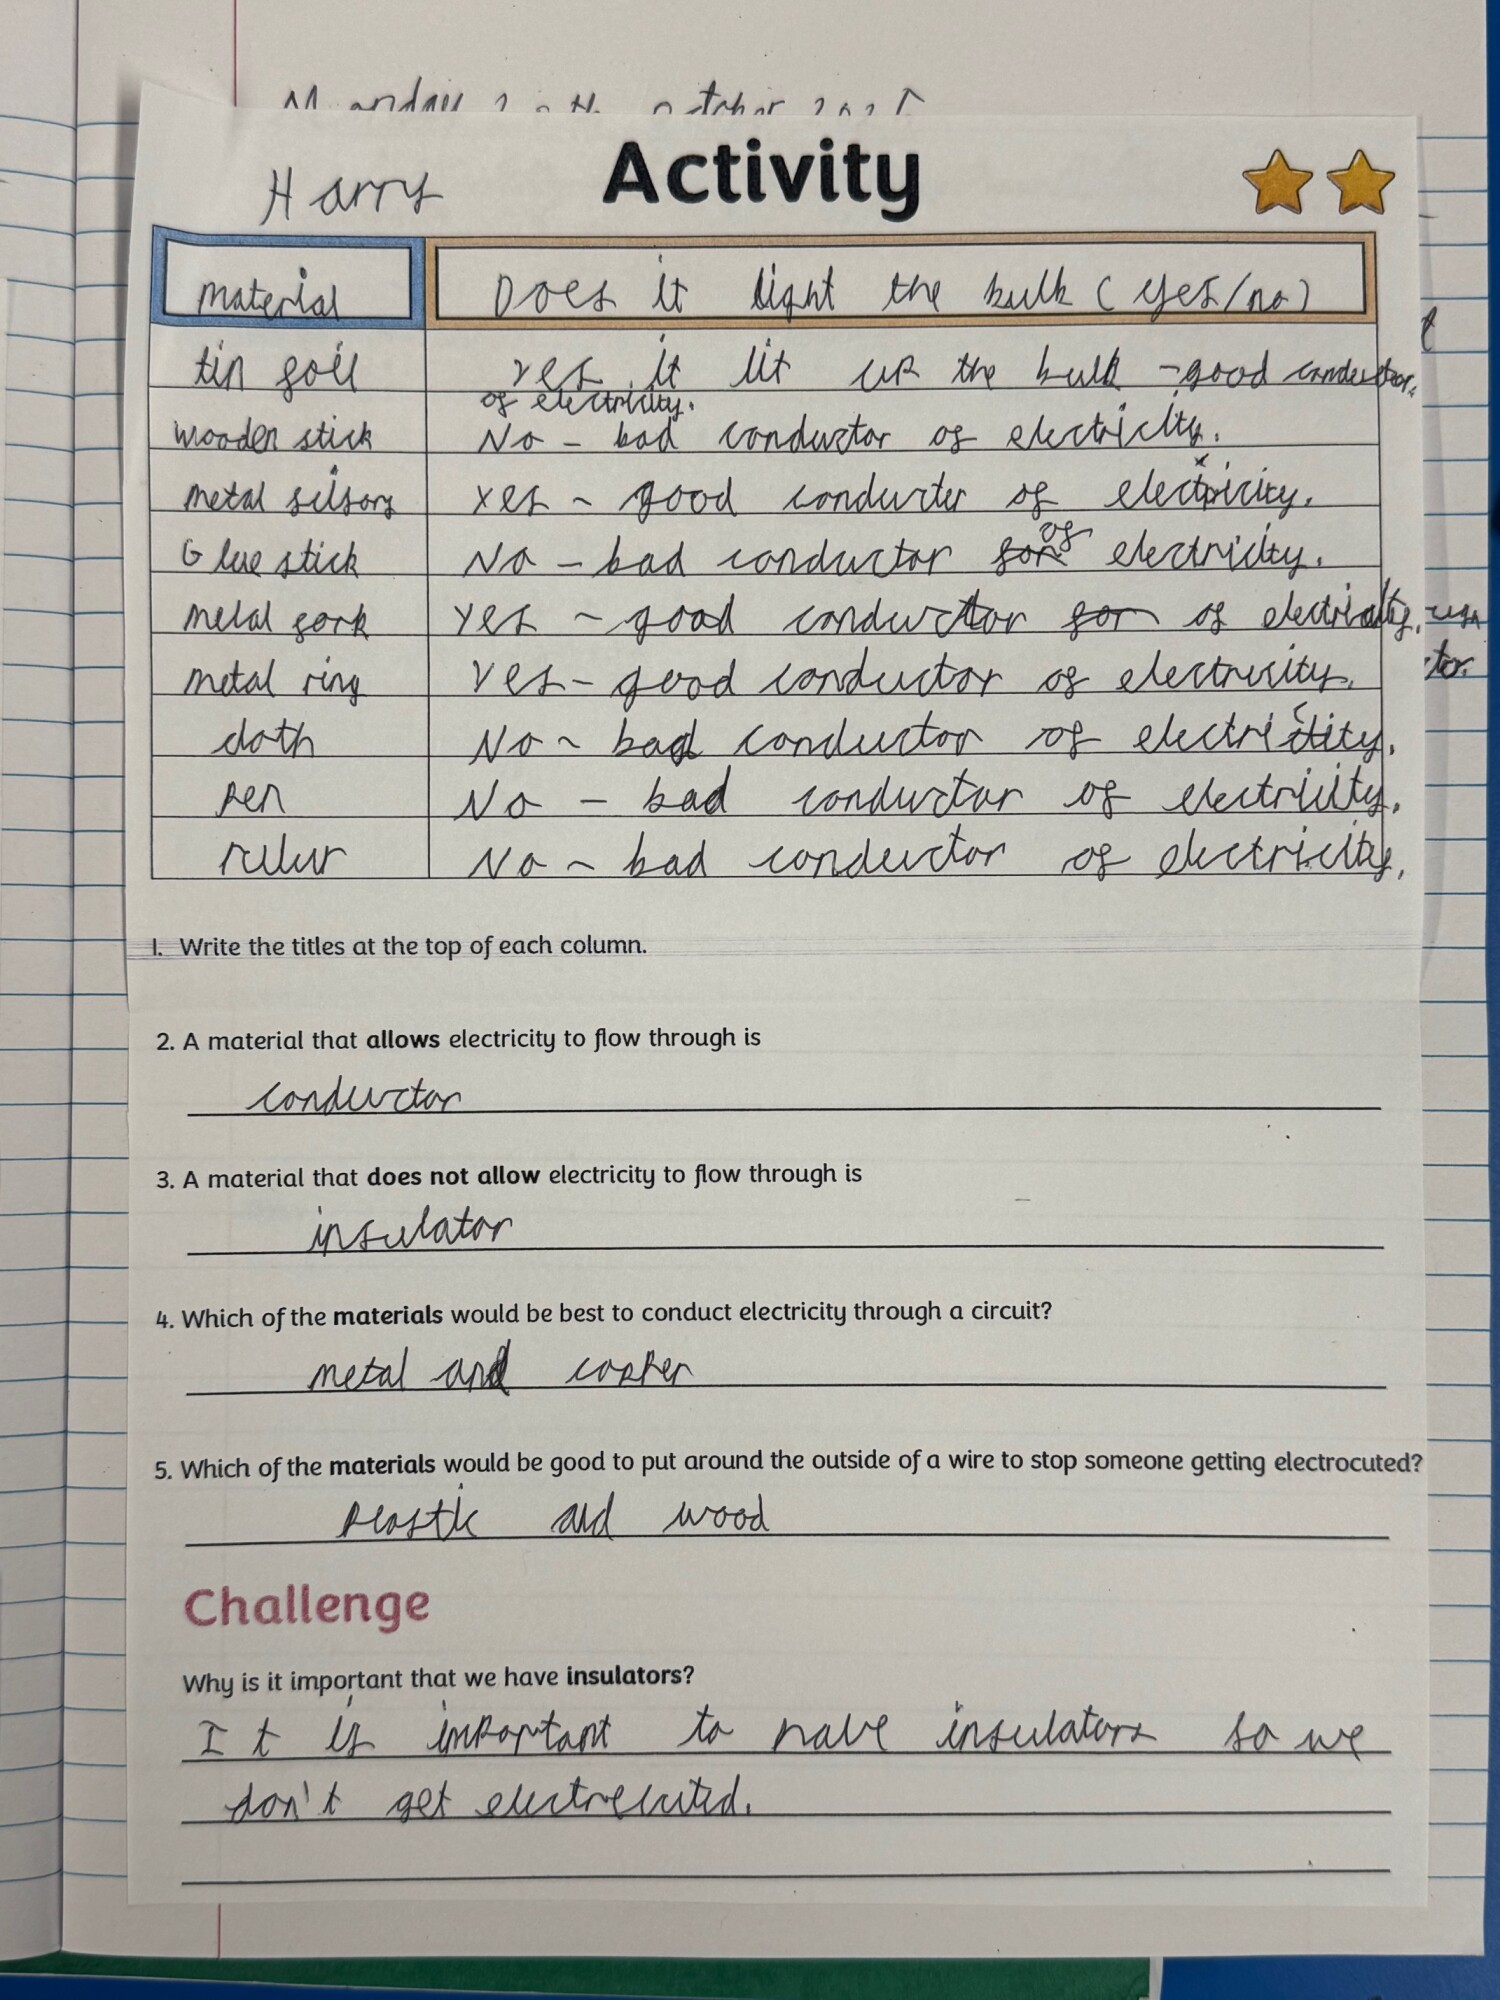 Harry
Activity
material Does it light the bulb (yes/no)
tin foil yes it lit up the bulb - good conductor
of electricity.
wooden stick No - bad conductor of electricity.
metal sisors yes - good conducter of electricity.
Glue stick No - bad conductor for of electricity.
metal fork yes - good conductor for of electricity.
metal ring yes - good conductor of electrusity.
cloth No - bad conductor of electricity.
pen No - bad conductor of electricity.
ruler No - bad conductor of electricity.
1. Write the titles at the top of each column.
2. A material that allows electricity to flow through is
conductor
3. A material that does not allow electricity to flow through is
insulator
4. Which of the materials would be best to conduct electricity through a circuit?
metal and copper
5. Which of the materials would be good to put around the outside of a wire to stop someone getting electrocuted?
plastic and wood
Challenge
Why is it important that we have insulators?
It is important to have insulators so we
don't get electrecuted.